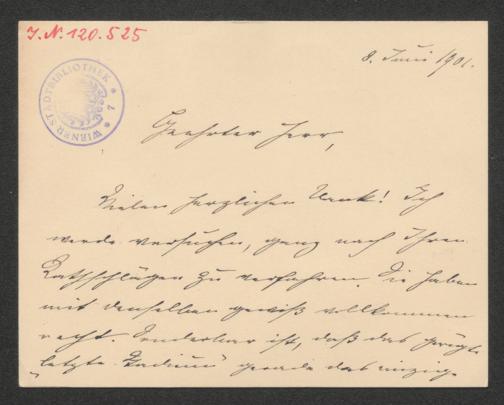 I. N. 120.525
WIENER STADTBIBLIOTHEK * 7 *
8. Juni 1901.
Geehrter Herr,
Vielen herzlichen Dank! Ich
werde versuchen, ganz nach Ihren
Rathschlägen zu verfahren. Sie haben
mit denselben gewiß vollkommen
recht. Sonderbar ist, daß das
„letzte Stadium" gerade das einzige